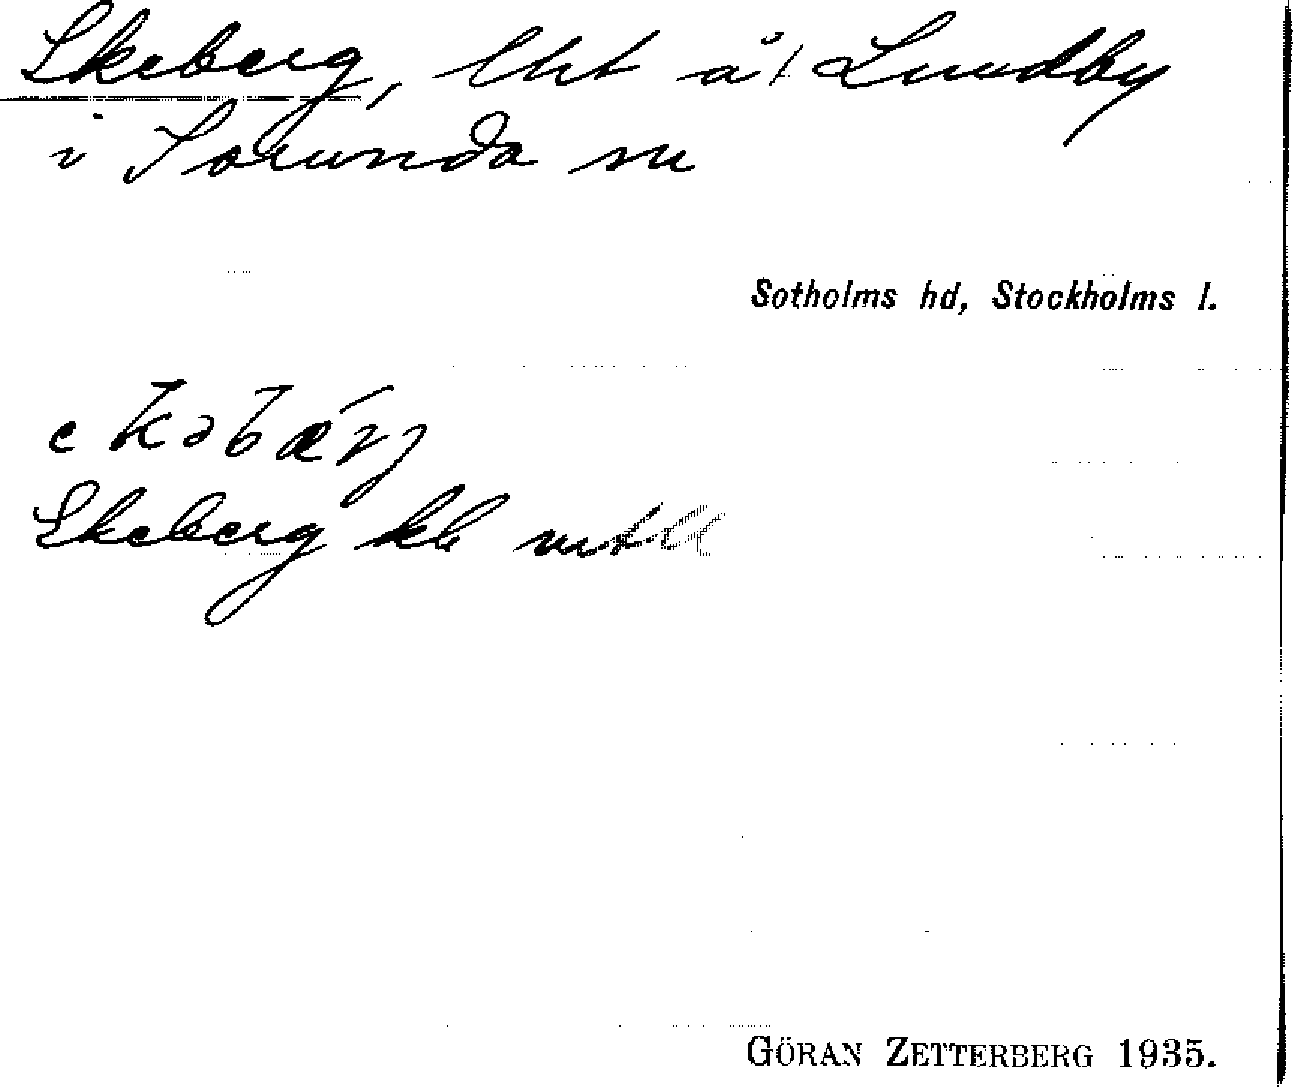 Ekeberg, lht å/ Lundby
i Sorunda sn
Sotholms hd, Stockholms l.
Ekeberg
GÖRAN ZETTERBERG 1935.